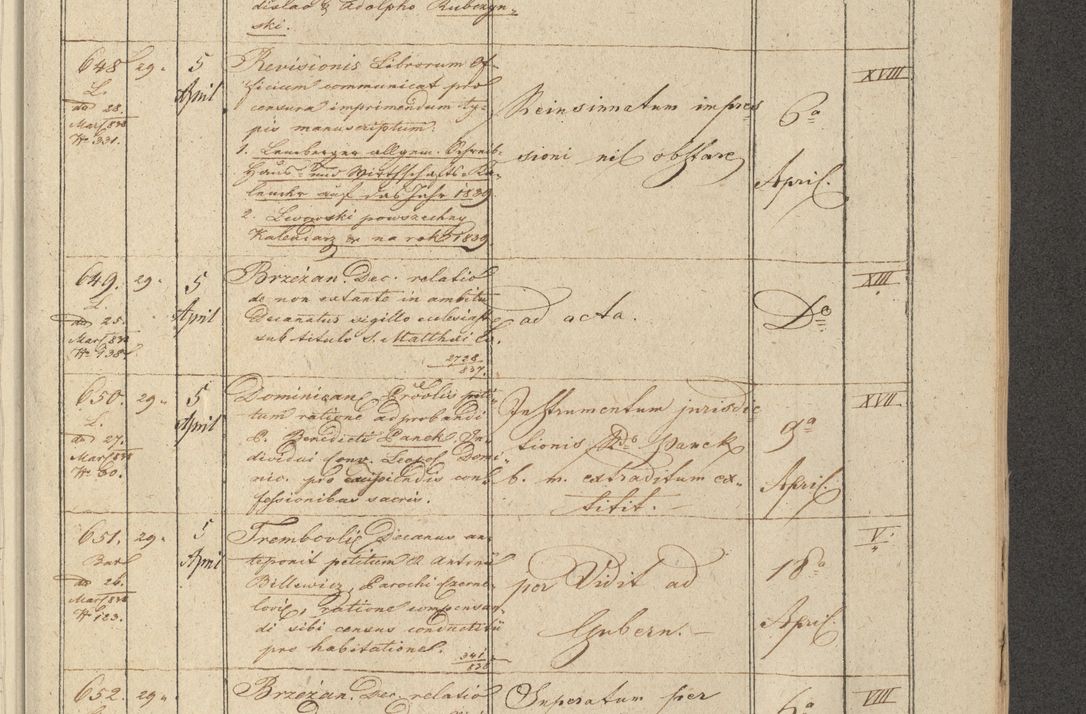 dislao & Adolpho Rubczyn-
ski.
648 29. 5 April
L.
dto 28.
Mart 838
Nr 331.
Revisionis Librorum Of-
ficium communicat pro
censura imprimendum ty-
pis manuscriptum.
1. Lemberger allgem. Schreib-
Haus- und Wirthschafts-Ka-
lender auf das Jahr 1839
2. Lwowski powszechny
Kalendarz & na rok 1839.
Reinsinuatum impres
sioni nil obstare
6a
April.
XVIII
649. 29. 5 April
L.
dto 25.
Mart 838
Brzeżan. Dec. relatio
de non extante in ambitu
Decanatus sigillo ecclesiast.
sub titulo S. Matthaei
2728
837.
ad acta.
Do
XIII
650. 29. 5 April
L.
dto 27.
Mart 838
Nr 60.
Dominican. Provlis peti-
tum ratione adprobandi
P. Benedicti Panek In-
dividui Conv. Leopol Domi-
nic. pro excipiendis con-
fessionibus sacris.
Instrumentum jurisdic
tionis Rdo Panek
b. m. extraditum ex-
titit.
9a
April.
XVII
651. 29. 5 April
dto 26.
Mart 838
Nr 123.
Trembovlie Decanus an-
teponit petitum A. Antonii
Billewicz Parochi Czerne-
lovie, ratione compensan-
di sibi census conductitii
pro habitatione.
341
838
per Vidit ad
Gubern.
18a
April.
V.
652. 29.
Brzeżan. Dec. relatio
Superatum per
6a
VIII